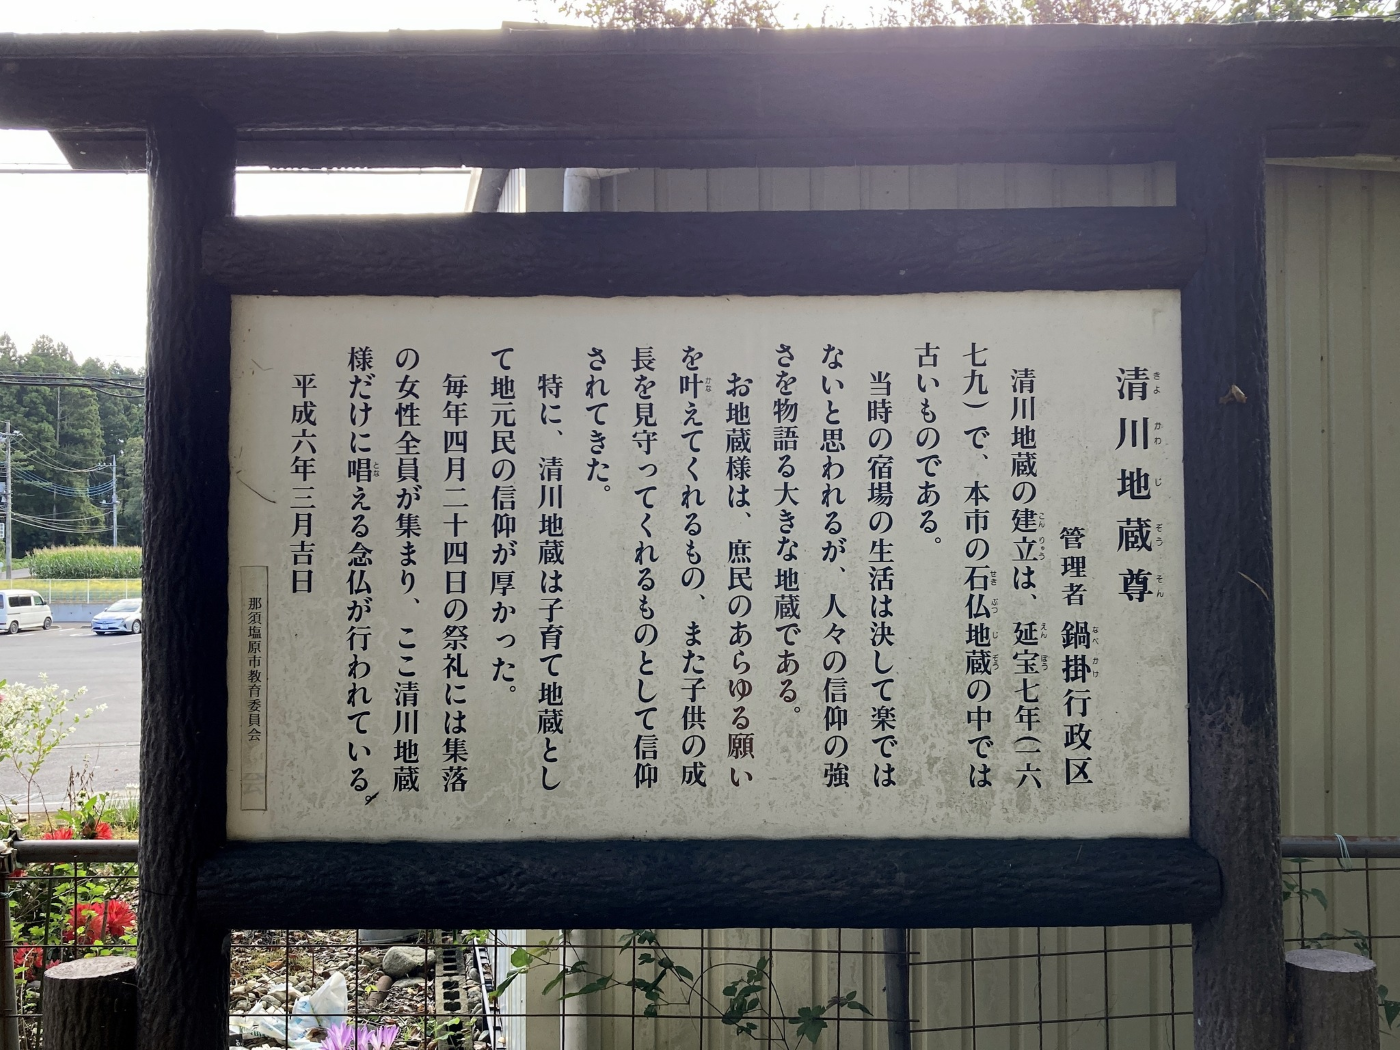 清川地蔵尊
管理者 鍋掛行政区
清川地蔵の建立は、延宝七年(一六
七九)で、本市の石仏地蔵の中では
古いものである。
当時の宿場の生活は決して楽では
ないと思われるが、人々の信仰の強
さを物語る大きな地蔵である。
お地蔵様は、庶民のあらゆる願い
を叶えてくれるもの、また子供の成
長を見守ってくれるものとして信仰
されてきた。
特に、清川地蔵は子育て地蔵とし
て地元民の信仰が厚かった。
毎年四月二十四日の祭礼には集落
の女性全員が集まり、ここ清川地蔵
様だけに唱える念仏が行われている。
平成六年三月吉日
那須塩原市教育委員会